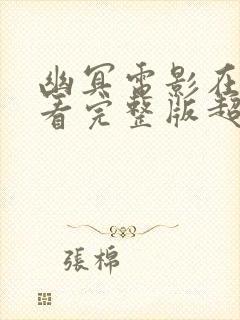 幽冥電影在
看完整版超
張棉